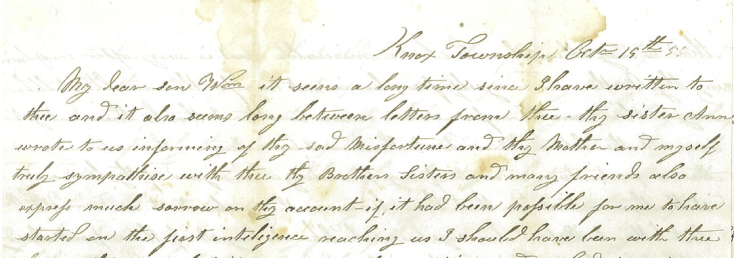 Knox Township Octr 19th 5
My dear son Wm it seems a long time since I have written to
thee and it also seems long between letters from thee - thy sister Ann
wrote to us informing of thy sad Misfortune and thy Mother and myself
truly sympathise with thee thy Brothers Sisters and many friends also
express much sorrow on thy account - if it had been possible for me to have
started on the first inteligence reaching us I should have been with thee